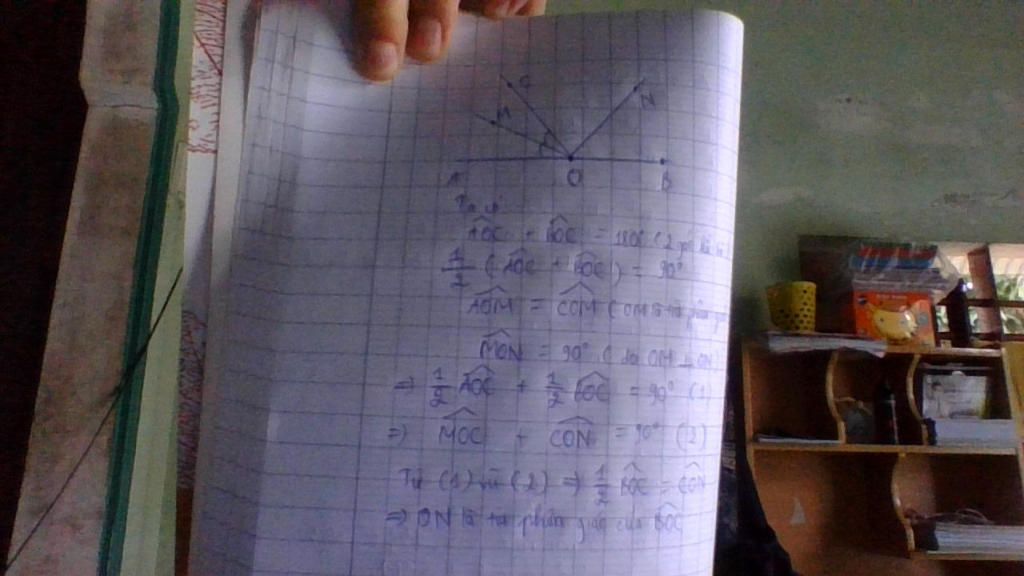 C
M
N
A
O
B
Ta có
AOC + BOC = 180 ( 2 góc kề bù
1/2 ( AOC + BOC ) = 90°
AOM = COM ( OM là tia phân
MON = 90° ( do OM ⊥ ON
=> 1/2 AOC + 1/2 BOC = 90° (1)
=> MOC + CON = 90° (2)
Từ (1) và (2) => 1/2 BOC = CON
=> ON là tia phân giác của BOC